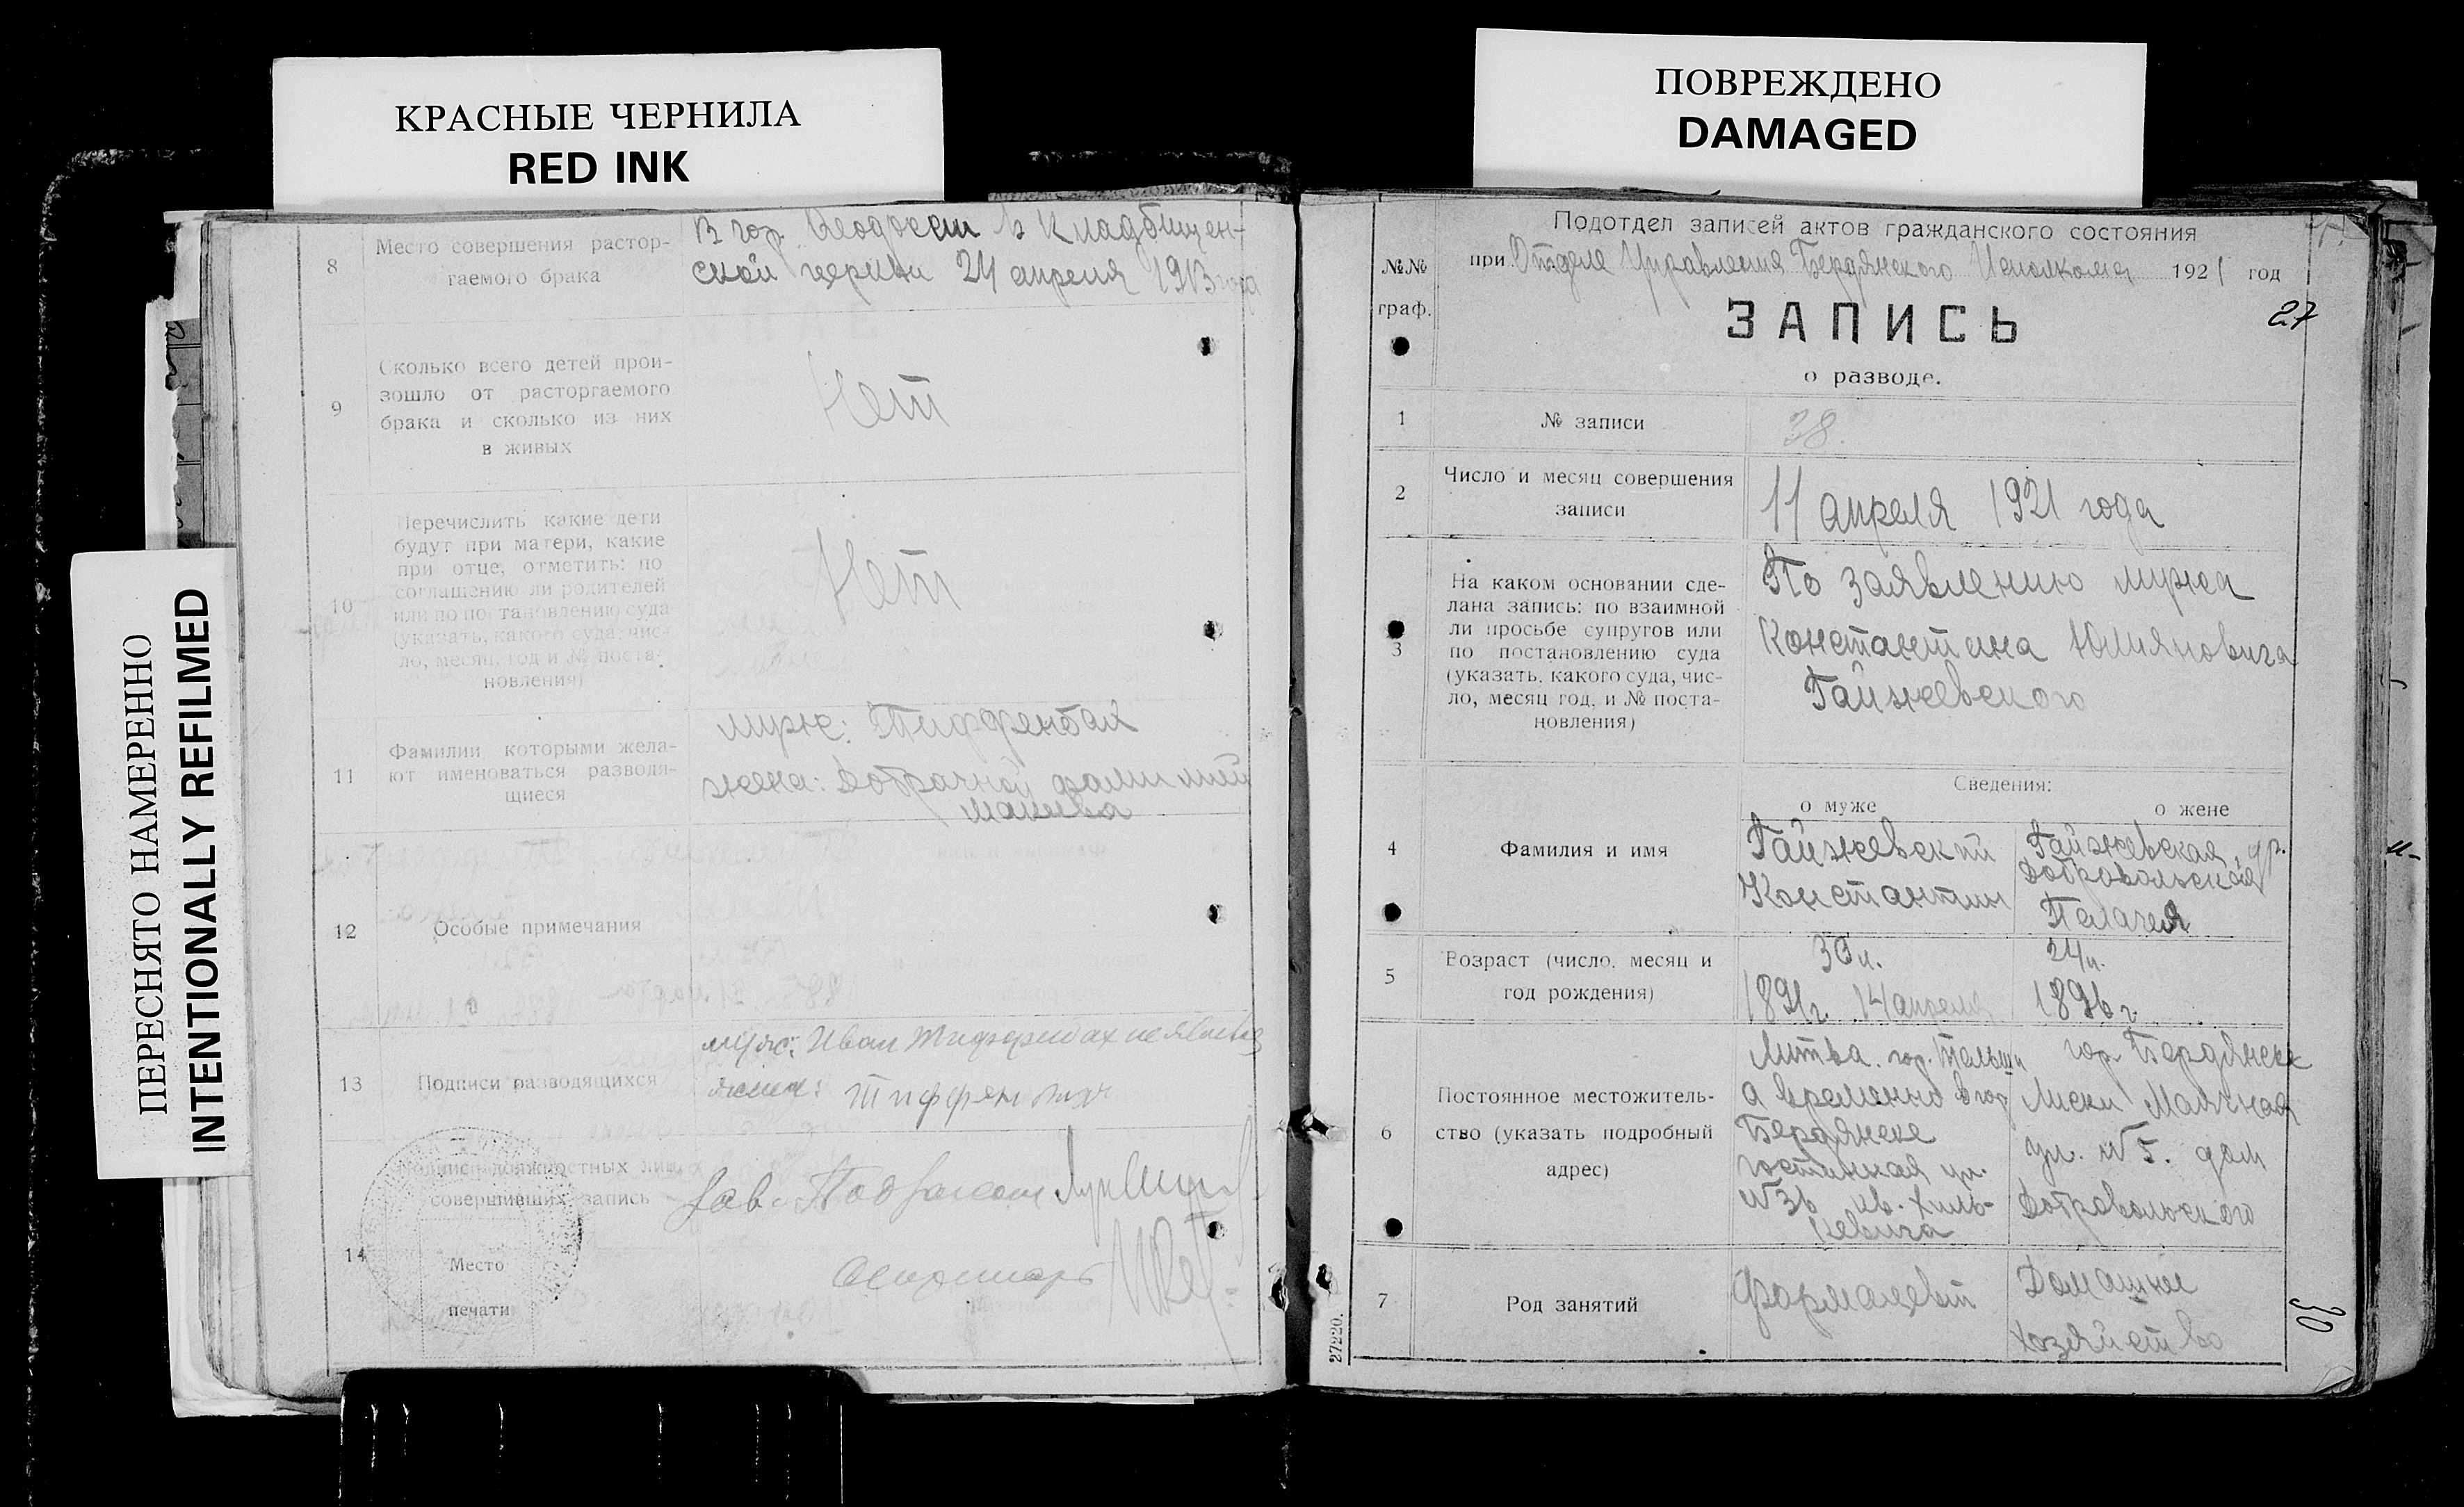 КРАСНЫЕ ЧЕРНИЛА
RED INK
ПОВРЕЖДЕНО
DAMAGED
ПЕРЕСНЯТО НАМЕРЕННО
INTENTIONALLY REFILMED
8
Место совершения растор-
гаемого брака
В гор. Феодосіи в Кладбищен-
ской церкви 24 апреля 1913 года
9
Сколько всего детей прои-
зошло от расторгаемого
брака и сколько из них
в живых
Нет
10
Перечислить какие дети
будут при матери, какие
при отце, отметить: по
соглашению ли родителей
или по постановлению суда
(указать, какого суда, чис-
ло, месяц, год и № поста-
новления)
Нет
11
Фамилии которыми жела-
ют именоваться разводя-
щиеся
муж: Тиффенбах
жена: добрачной фамилией
12
Особые примечания
13
Подписи разводящихся
муж: Иван Тиффенбах
жена: Тиффенбах
14
Подписи должностных лиц,
совершивших запись
Зав. Подъотделом
Секретарь
Место
печати
Подотдел записей актов гражданского состояния
при Отделе Управления Бердянского Исполкома 1921 год
№№
граф.
27
ЗАПИСЬ
о разводе.
1
№ записи
38.
2
Число и месяц совершения
записи
11 апреля 1921 года
3
На каком основании сде-
лана запись: по взаимной
ли просьбе супругов или
по постановлению суда
(указать, какого суда, чис-
ло, месяц год, и № поста-
новления)
По заявлению мужа
Константина Юлияновича
Гайжевского
Сведения:
о муже
о жене
4
Фамилия и имя
Гайжевский
Константин
Гайжевская, ур.
Добровольская
Пелагея
5
Возраст (число, месяц и
год рождения)
30 л.
1891 г. 14 апреля
24 л.
1896 г.
6
Постоянное местожитель-
ство (указать подробный
адрес)
Литва. гор. Тельши
а временно в гор
Бердянске
гостинная ул.
№ 36 кв. Хиль-
кевича
гор Бердянск
Лиски Маячная
ул. № 5. дом
Добровольского
7
Род занятий
Фармацевт
Домашнее
хозяйство
30
27220.